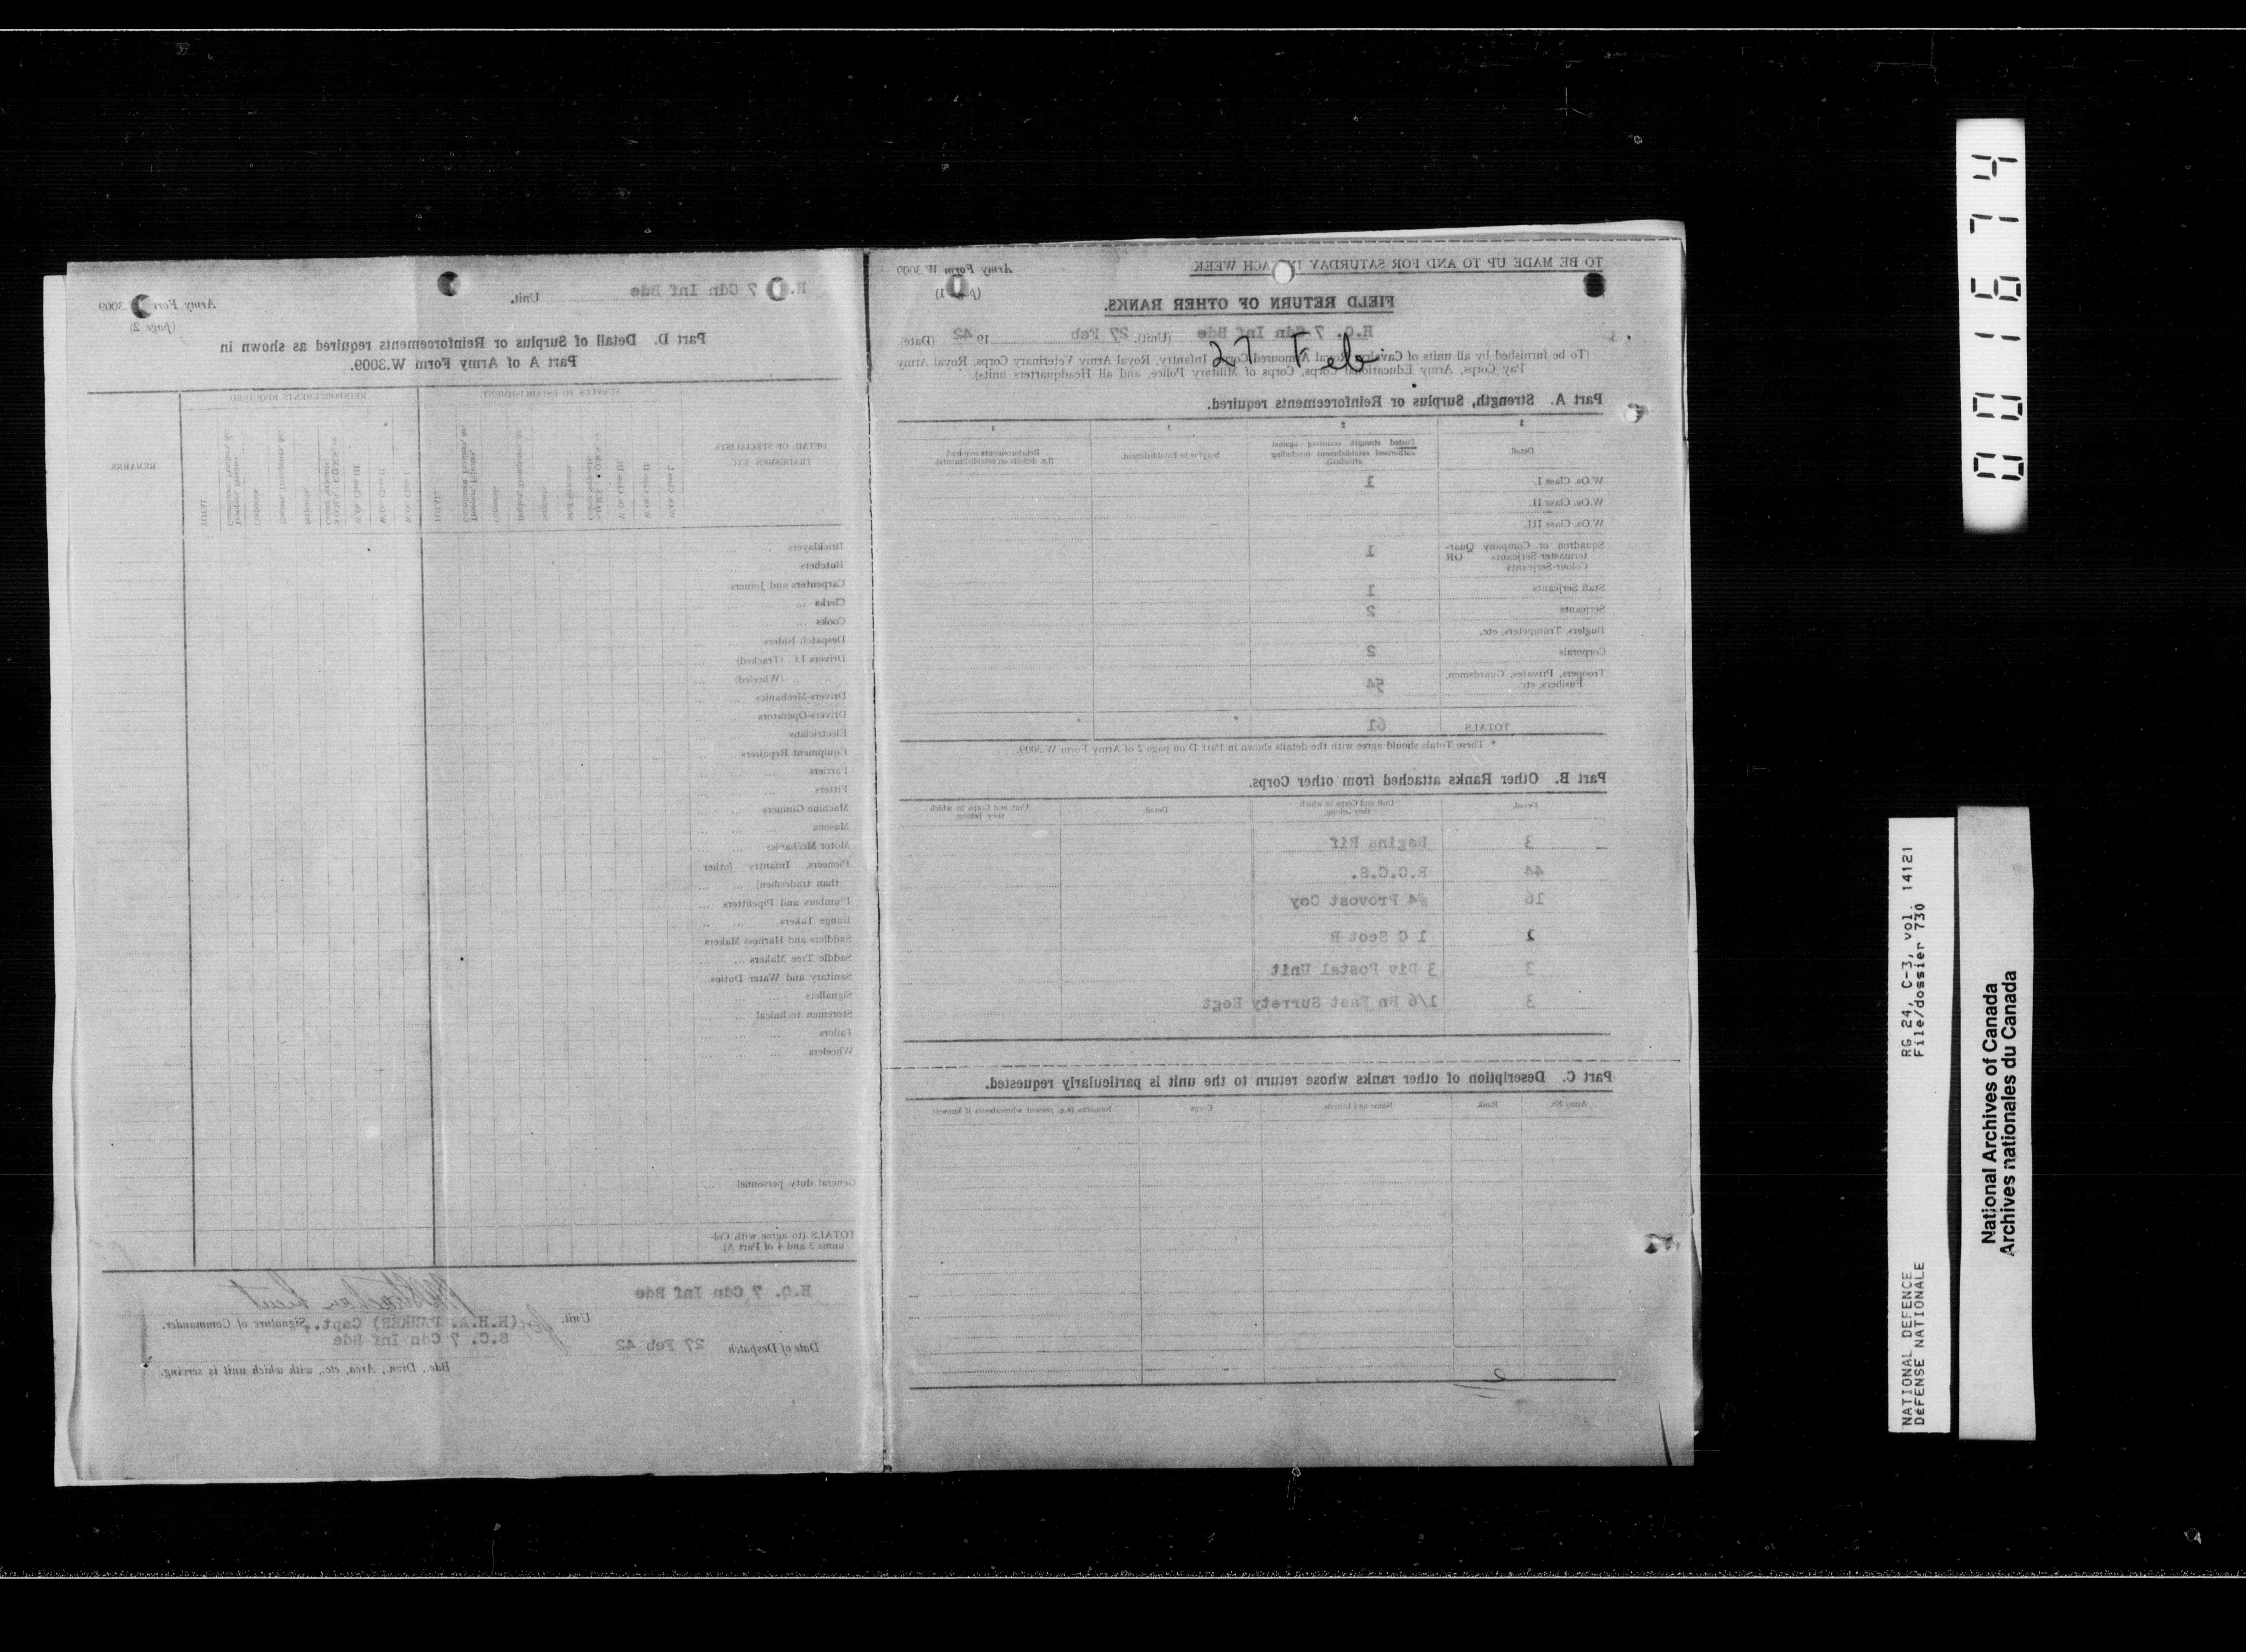 TO BE MADE UP TO AND FOR SATURDAY IN EACH WEEK
Army Form W 3009
(page 1)
FIELD RETURN OF OTHER RANKS.
H.Q. 7 Cdn Inf Bde (Unit). 27 Feb 1942 (Date).
27 Feb
(To be furnished by all units of Cavalry, Royal Armoured Corps, Infantry, Royal Army Veterinary Corps, Royal Army
Pay Corps, Army Educational Corps, Corps of Military Police, and all Headquarters units).
Part A. Strength, Surplus or Reinforcements required.
1 2 3 4
Detail
Posted strength counting against authorised establishment (excluding attached).
Surplus to Establishment.
Reinforcements required (i.e. deficits on establishments)
W.Os. Class I. 1
W.Os. Class II.
W.Os. Class III.
Squadron or Company Quar-
termaster-Serjeants OR 1
Colour-Serjeants
Staff Serjeants 1
Serjeants 2
Buglers, Trumpeters, etc.
Corporals 2
Troopers, Privates, Guardsmen, 54
Fusiliers, etc.
TOTALS 61 * *
* These Totals should agree with the details shown in Part D on page 2 of Army Form W.3009.
Part B. Other Ranks attached from other Corps.
Detail. Unit and Corps to which they belong. Detail. Unit and Corps to which they belong.
3 Regina Rif
44 R.C.C.S.
16 #4 Provost Coy
2 1 C Scot R
3 3 Div Postal Unit
3 1/6 Bn East Surrety Regt
Part C. Description of other ranks whose return to the unit is particularly requested.
Army No. Rank Name and Initials Corps Remarks (e.g. present whereabouts if known)
H.Q. 7 Cdn Inf Bde Unit.
Army Form W.3009
(page 2)
Part D. Detail of Surplus or Reinforcements required as shown in
Part A of Army Form W.3009.
DETAIL OF SPECIALISTS
TRADESMEN ETC.
SURPLUS TO ESTABLISHMENT
REINFORCEMENTS REQUIRED
REMARKS
W.Os. Class I.
W.Os. Class II
W.Os. Class III
Staff Serjeants
Serjeants
Corporals
TOTAL
W.Os. Class I.
W.Os. Class II
W.Os. Class III
Serjeants
Corporals
TOTAL
Bricklayers
Butchers
Carpenters and Joiners
Clerks
Cooks
Despatch Riders
Drivers I.C. (Tracked)
,, ,, (Wheeled)
Drivers-Mechanics
Drivers-Operators
Electricians
Equipment Repairers
Farriers
Fitters
Machine Gunners
Masons
Motor Mechanics
Pioneers, Infantry (other
than tradesmen)
Plumbers and Pipefitters
Range Takers
Saddlers and Harness Makers
Saddle Tree Makers
Sanitary and Water Duties
Signallers
Storemen technical
Tailors
Wheelers
General duty personnel
TOTALS (to agree with Col-
umns 3 and 4 of Part A).
H.Q. 7 Cdn Inf Bde Unit.
for Lieut
(H.H.A. PARKER) Capt., Signature of Commander.
S.C. 7 Cdn Inf Bde
Date of Despatch 27 Feb 42
Bde., Divn., Area, etc., with which unit is serving.
001674
NATIONAL DEFENCE RG 24, C-3, vol. 14121
DéFENSE NATIONALE File/dossier 730
National Archives of Canada
Archives nationales du Canada